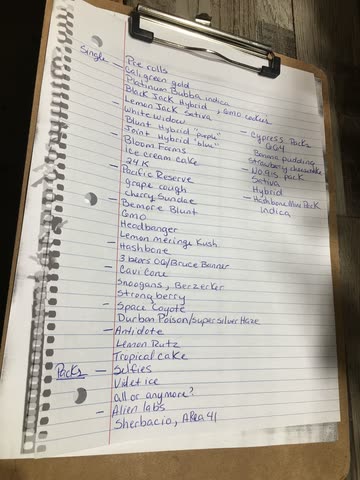 Single - Pre rolls
Cali green gold
Platinum Bubba indica
Black Jack Hybrid, GMO cookies
- Lemon Jack Sativa
White widow
Blunt Hybrid "purple"
- Joint Hybrid "blue"
Bloom Farms
Ice cream cake
24K
- Pacific Reserve
grape cough
cherry Sundae
- Bemore Blunt
GMO
Headbanger
Lemon meringe Kush
- Hashbone
3 bears OG/Bruce Banner
- Cavi Cone
Snoogans, Berzerker
Strongberry
- Space Coyote
Durban Poison/super silver Haze
- Antidote
Lemon Runtz
Tropical cake
Packs - Selfies
Videt ice
all or anymore?
- Alien labs
Sherbacio, AReA 41
- Cypress Packs
GG4
Banana pudding
Strawberry cheesecake
- No. 9's pack
Sativa
Hybrid
- Hashbone Mini Pack
indica